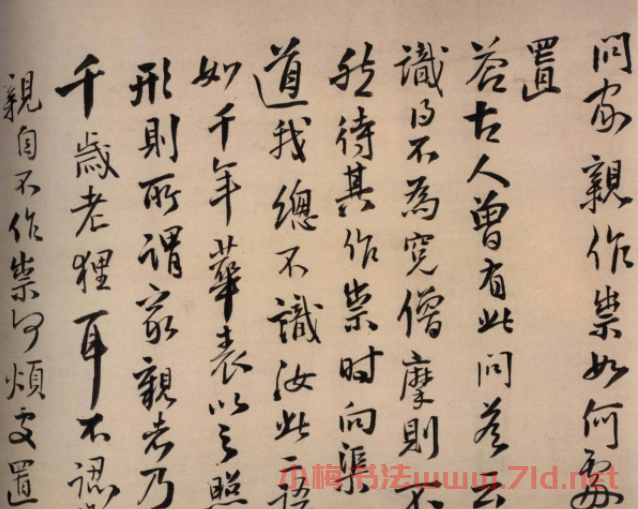 問家親作祟如何處
置
答古人曾有此問答云
識得不為冤僧摩則不
然待其作祟時向渠
道我總不識汝此一語
如千年華表以之照
形則所謂家親者乃
千歲老狸耳不認
親自不作祟何煩處置
小梅书法www.7ld.net